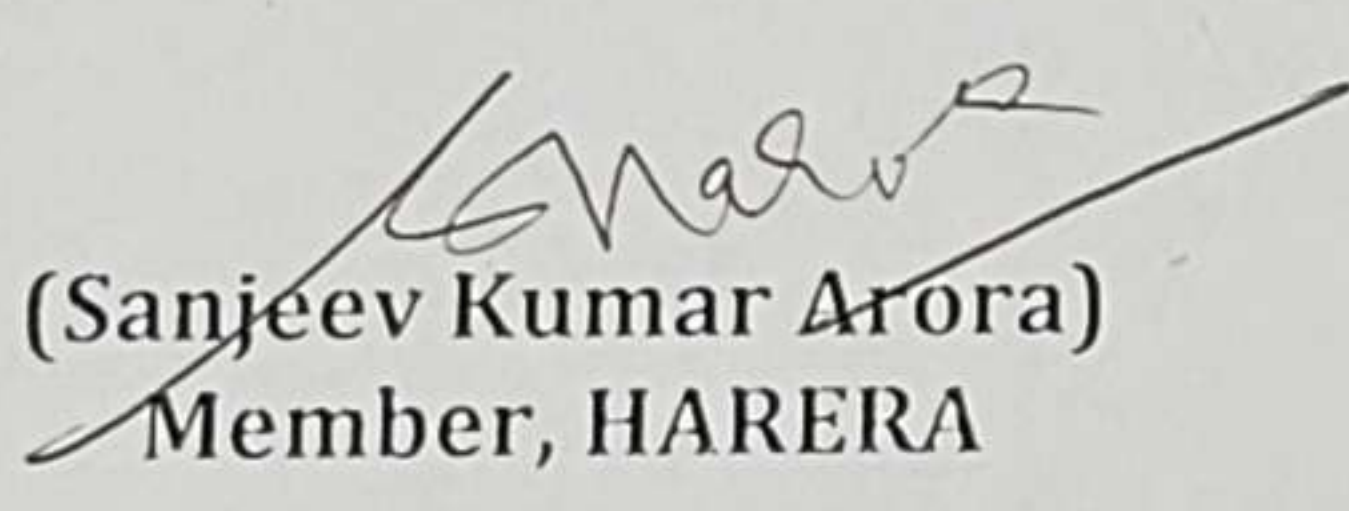 (Sanjeev Kumar Arora)
Member, HARERA